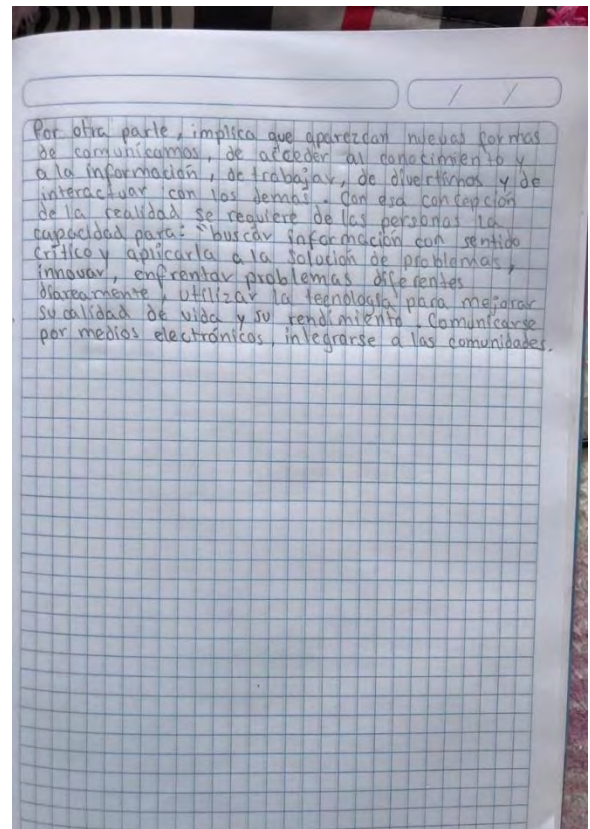 Por otra parte, implica que aparezcan nuevas formas
de comunicarnos, de acceder al conocimiento y
a la información, de trabajar, de divertirnos y de
interactuar con los demas. Con esa concepción
de la realidad se requiere de las personas la
capacidad para: "buscar información con sentido
crítico y aplicarla a la solución de problemas,
innovar, enfrentar problemas diferentes
diareamente, utilizar la tecnología para mejorar
su calidad de vida y su rendimiento. Comunicarse
por medios electrónicos, integrarse a las comunidades.